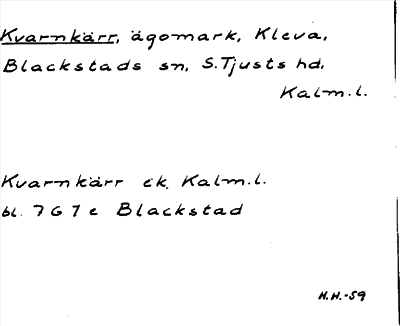 Kvarnkärr, ägomark, Kleva,
Blackstads sn, S.Tjusts hd,
Kalm.l.
Kvarnkärr ek. Kalm.l.
bl. 7G7e Blackstad
H.H.-59